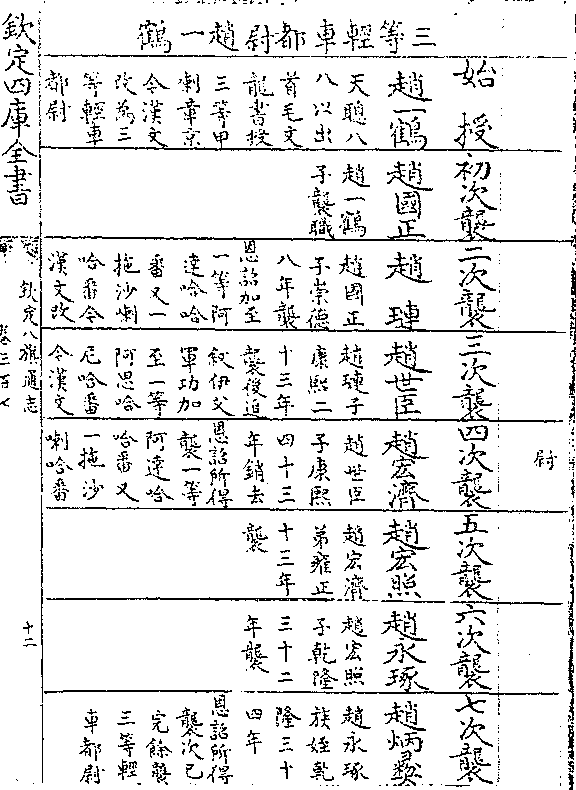 尉
三等輕車都尉趙一鶴
始授
趙一鶴
天聰八
八以出
首毛文
龍書授
三等甲
喇章京
令漢文
改為三
等輕車
都尉
初次襲
趙國正
趙一鶴
子襲職
二次襲
趙璉
趙國正
子崇德
八年襲
恩詔加至
一等阿
達哈哈
番又一
拖沙喇
哈番令
漢文改
三次襲
趙世臣
趙璉子
康熙二
十三年
襲後追
敘伊父
軍功加
至一等
阿思哈
尼哈番
令漢文
四次襲
趙宏濟
趙世臣
子康熙
四十三
年銷去
恩詔所得
襲一等
阿達哈
哈番又
一拖沙
喇哈番
五次襲
趙宏照
趙宏濟
弟雍正
十三年
襲
六次襲
趙永琢
趙宏照
子乾隆
三十二
年襲
七次襲
趙炳彝
趙永琢
族姪乾
隆三十
四年
恩詔所得
襲次已
完餘襲
三等輕
車都尉
欽定四庫全書
欽定八旗通志
卷三百七
十二